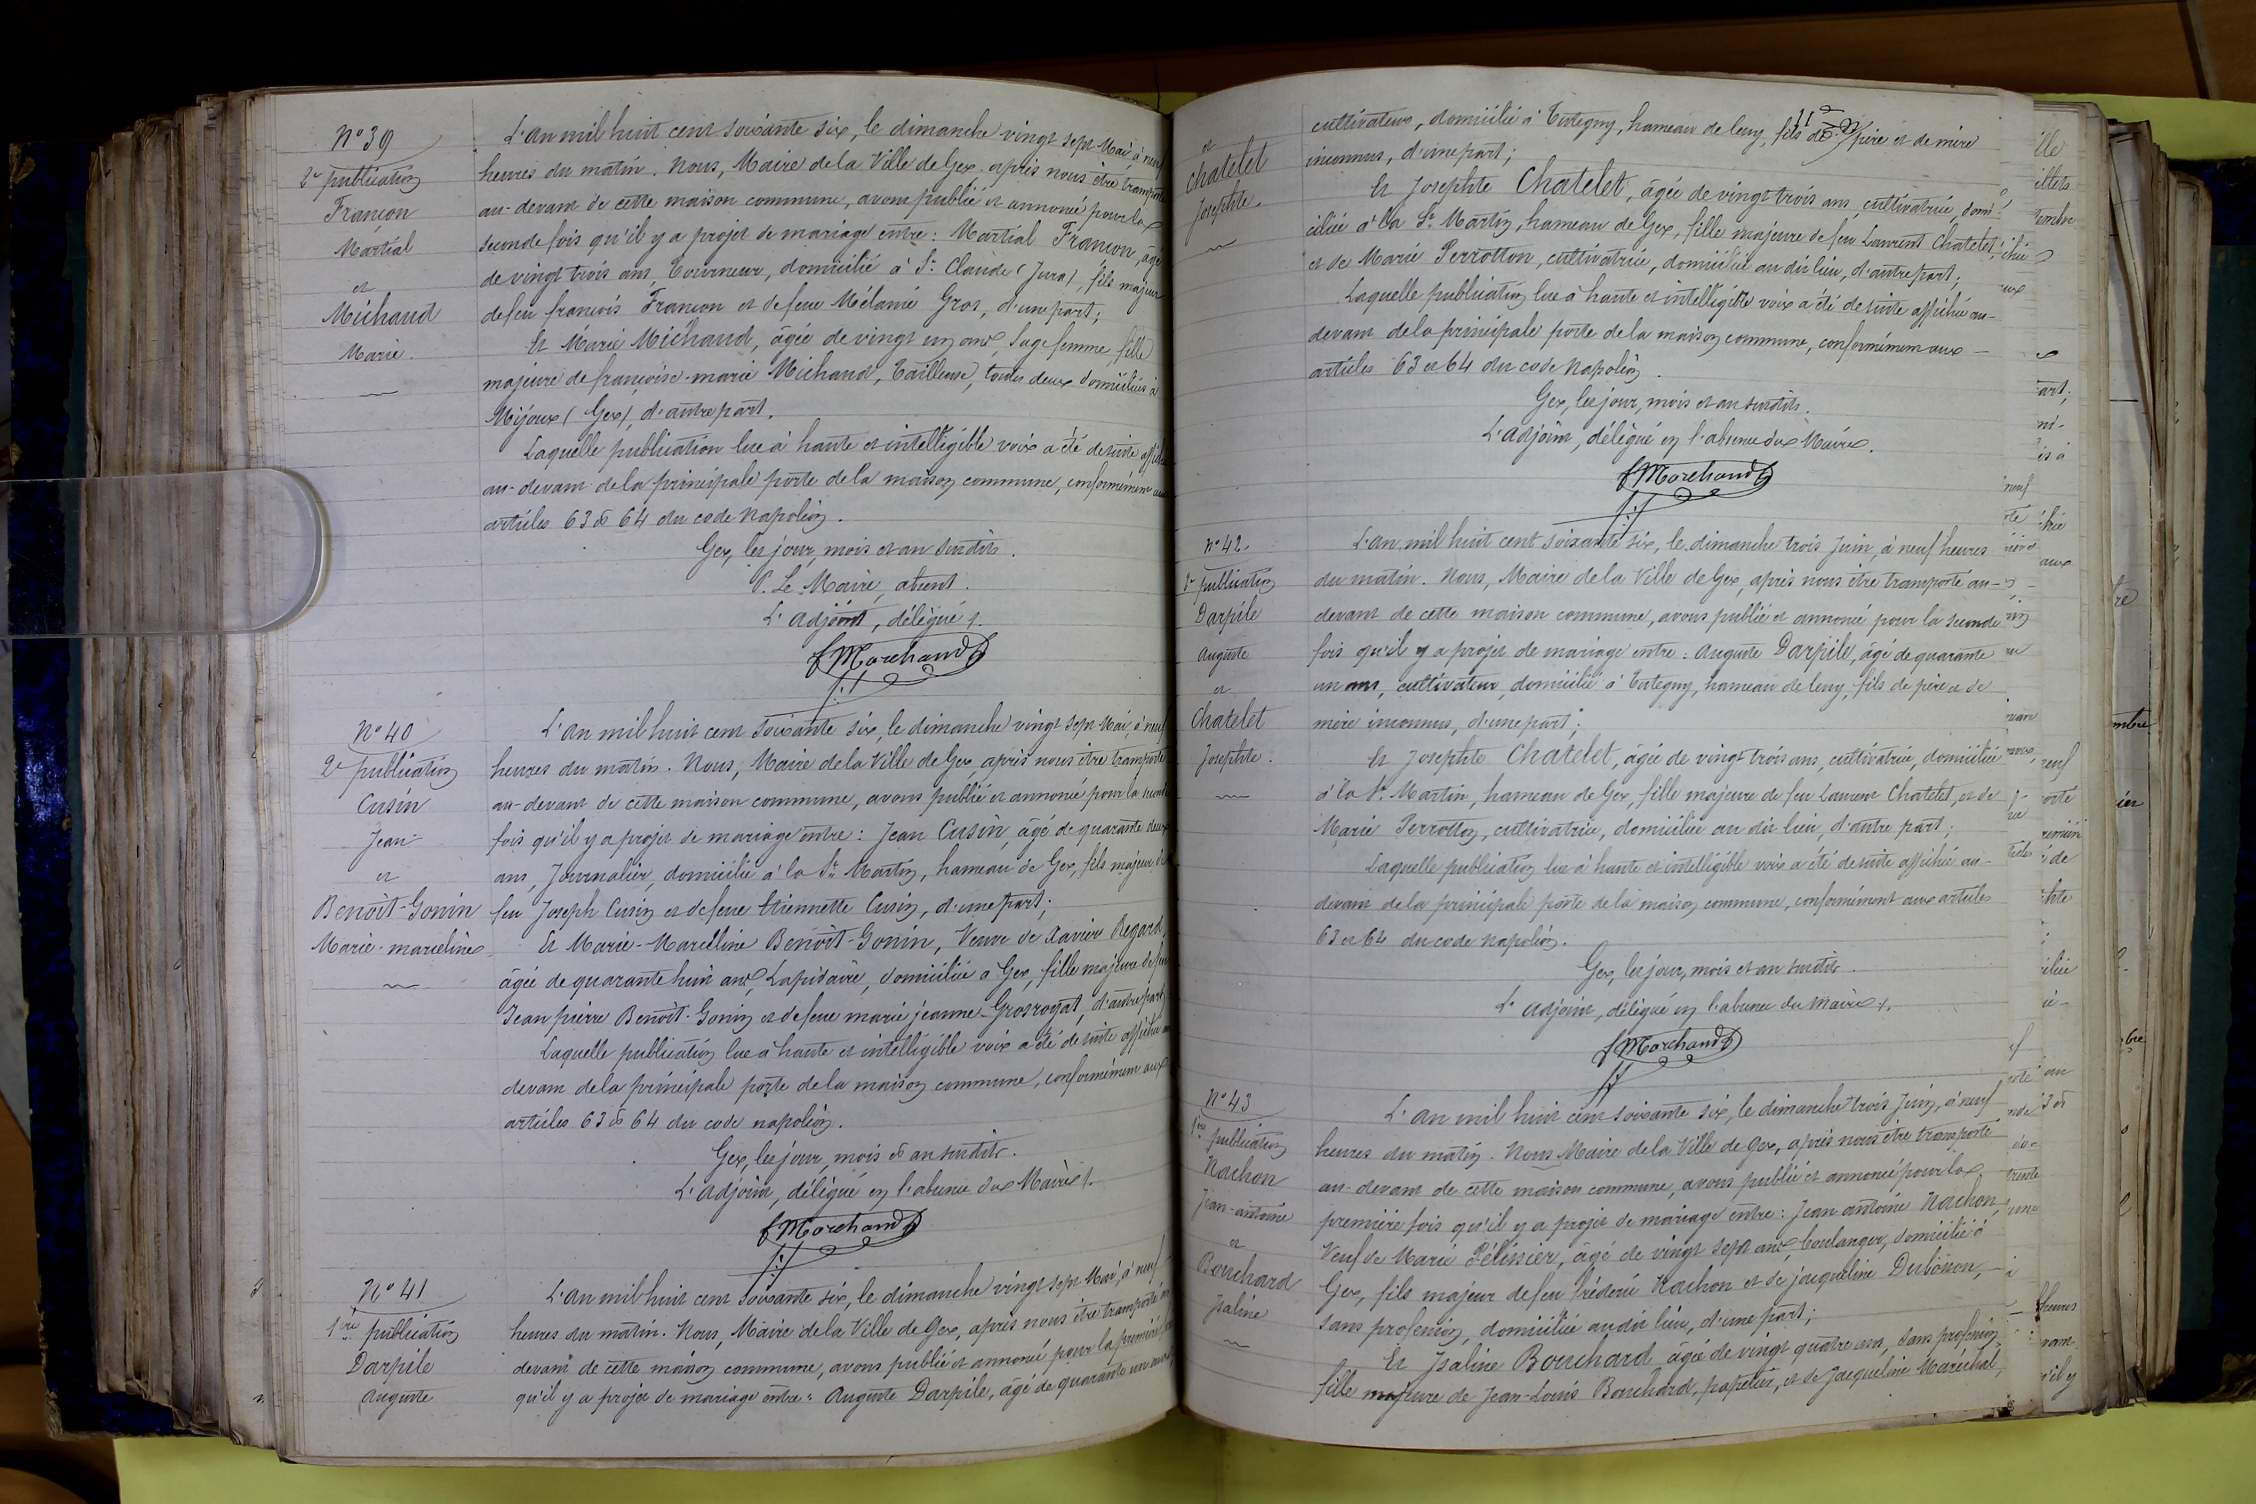 N° 39
2e publication
Françon
Martial
et
Michaud
Marie.
L'an mil huit cent soixante six, le dimanche vingt sept Mai à neuf
heures du matin. Nous, Maire de la Ville de Gex, après nous être transporté
au-devant de cette maison commune, avons publié et annoncé pour la
seconde fois qu'il y a projet de mariage entre : Martial Françon, âgé
de vingt trois ans, Tourneur, domicilié à St. Claude (Jura), fils majeur
de feu françois Françon et de feue Mélanie Gros, d'une part;
Et Marie Michaud, âgée de vingt un ans, Sage femme, fille
majeure de françoise-marie Michaud, Tailleuse, toutes deux domiciliées à
Mijoux (Gex), d'autre part.
Laquelle publication lue à haute et intelligible voix a été de suite affichée
au-devant de la principale porte de la maison commune, conformément aux
articles 63 & 64 du code Napoléon.
Gex, les jour, mois et an susdits.
P. Le Maire, absent.
L'adjoint, délégué.
Marchand
N° 40
2e publication
Cusin
Jean
et
Benoît-Gonin
Marie-marceline
L'an mil huit cent soixante six, le dimanche vingt sept Mai, à neuf
heures du matin. Nous, Maire de la Ville de Gex, après nous être transporté
au-devant de cette maison commune, avons publié et annoncé pour la seconde
fois qu'il y a projet de mariage entre : Jean Cusin, âgé de quarante deux
ans, Journalier, domicilié à la St. Martin, hameau de Gex, fils majeur de
feu Joseph Cusin et de feue Etiennette Cusin, d'une part;
Et Marie-Marcelline Benoît-Gonin, Veuve de Xavier Regard,
âgée de quarante huit ans, Lapidaire, domiciliée à Gex, fille majeure de feu
Jean pierre Benoît-Gonin et de feue marie jeanne Grosroyat, d'autre part;
Laquelle publication lue à haute et intelligible voix a été de suite affichée au
devant de la principale porte de la maison commune, conformément aux
articles 63 & 64 du code napoléon.
Gex, les jour, mois & an susdits.
L'adjoint, délégué en l'absence du Maire.
Marchand
N° 41
1ère publication
Darpile
Auguste
L'an mil huit cent soixante six, le dimanche vingt sept Mai, à neuf
heures du matin. Nous, Maire de la Ville de Gex, après nous être transporté au
devant de cette maison commune, avons publié et annoncé pour la première fois
qu'il y a projet de mariage entre : Auguste Darpile, âgé de quarante un ans,
et
Chatelet
Josephte.
cultivateur, domicilié à Tutegny, hameau de Cessy, fils de père et de mère
inconnus, d'une part;
Et Josephte Chatelet, âgée de vingt trois ans, cultivatrice, domi-
ciliée à la St. Martin, hameau de Gex, fille majeure de feu Laurent Chatelet,
et de Marie Perrotton, cultivatrice, domiciliée au dit lieu, d'autre part;
Laquelle publication lue à haute et intelligible voix a été de suite affichée au-
devant de la principale porte de la maison commune, conformément aux
articles 63 et 64 du code Napoléon.
Gex, les jour, mois et an susdits.
L'adjoint, délégué en l'absence du Maire.
Marchand
N° 42.
2e publication
Darpile
Auguste
et
Chatelet
Josephte.
L'an mil huit cent soixante six, le dimanche trois Juin, à neuf heures
du matin. Nous, Maire de la Ville de Gex, après nous être transporté au-
devant de cette maison commune, avons publié et annoncé pour la seconde
fois qu'il y a projet de mariage entre : Auguste Darpile, âgé de quarante
un ans, cultivateur, domicilié à Tutegny, hameau de Cessy, fils de père et de
mère inconnus, d'une part;
Et Josephte Chatelet, âgée de vingt trois ans, cultivatrice, domiciliée
à la St. Martin, hameau de Gex, fille majeure de feu Laurent Chatelet, et de
Marie Perrotton, cultivatrice, domiciliée au dit lieu, d'autre part;
Laquelle publication lue à haute et intelligible voix a été de suite affichée au-
devant de la principale porte de la maison commune, conformément aux articles
63 et 64 du code napoléon.
Gex, les jour, mois et an susdits.
L'adjoint, délégué en l'absence du Maire.
Marchand
N° 43
1ère publication
Nachon
Jean-antoine
et
Bouchard
Isaline
L'an mil huit cent soixante six, le dimanche trois Juin, à neuf
heures du matin. Nous Maire de la Ville de Gex, après nous être transporté
au-devant de cette maison commune, avons publié et annoncé pour la
première fois qu'il y a projet de mariage entre : Jean antoine Nachon,
Veuf de Marie Pélissier, âgé de vingt sept ans, boulanger, domicilié à
Gex, fils majeur de feu fréderic Nachon et de jacqueline Dubosson,
sans profession, domiciliée au dit lieu, d'une part;
Et Isaline Bouchard, âgée de vingt quatre ans, sans profession,
fille majeure de Jean-Louis Bouchard, papetier, et de Jacqueline Maréchal,